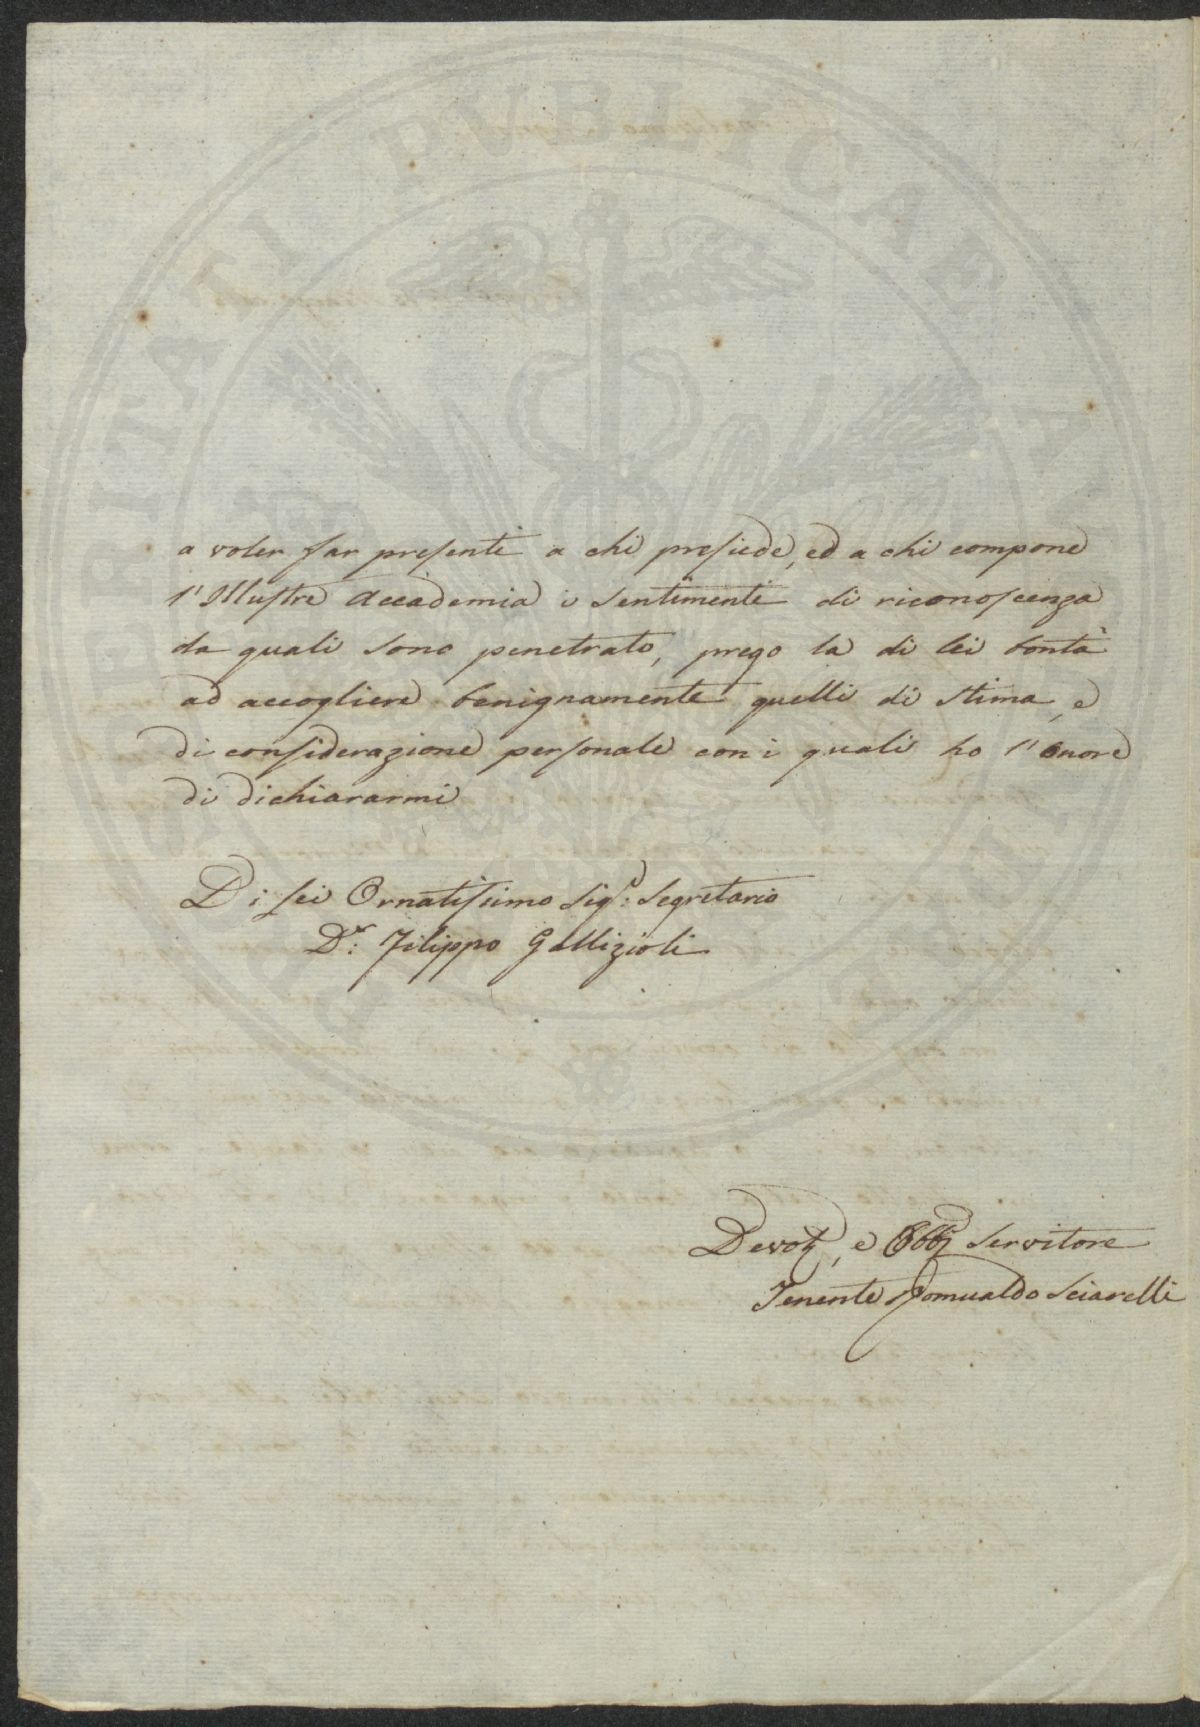 PROSPERITATI PUBLICAE AUGENDAE
a voler far presenti a chi presiede, ed a chi compone
l'Illustre Accademia i sentimenti di riconoscenza
da quali sono penetrato, prego la di lei bontà
ad accogliere benignamente quelli di stima, e
di considerazione personale con i quali ho l'onore
di dichiararmi
Di lei Ornatissimo Sigr: Segretario
Dr: Filippo Gallizioli
Devot, e Obb servitore
Tenente Romualdo Sciarelli